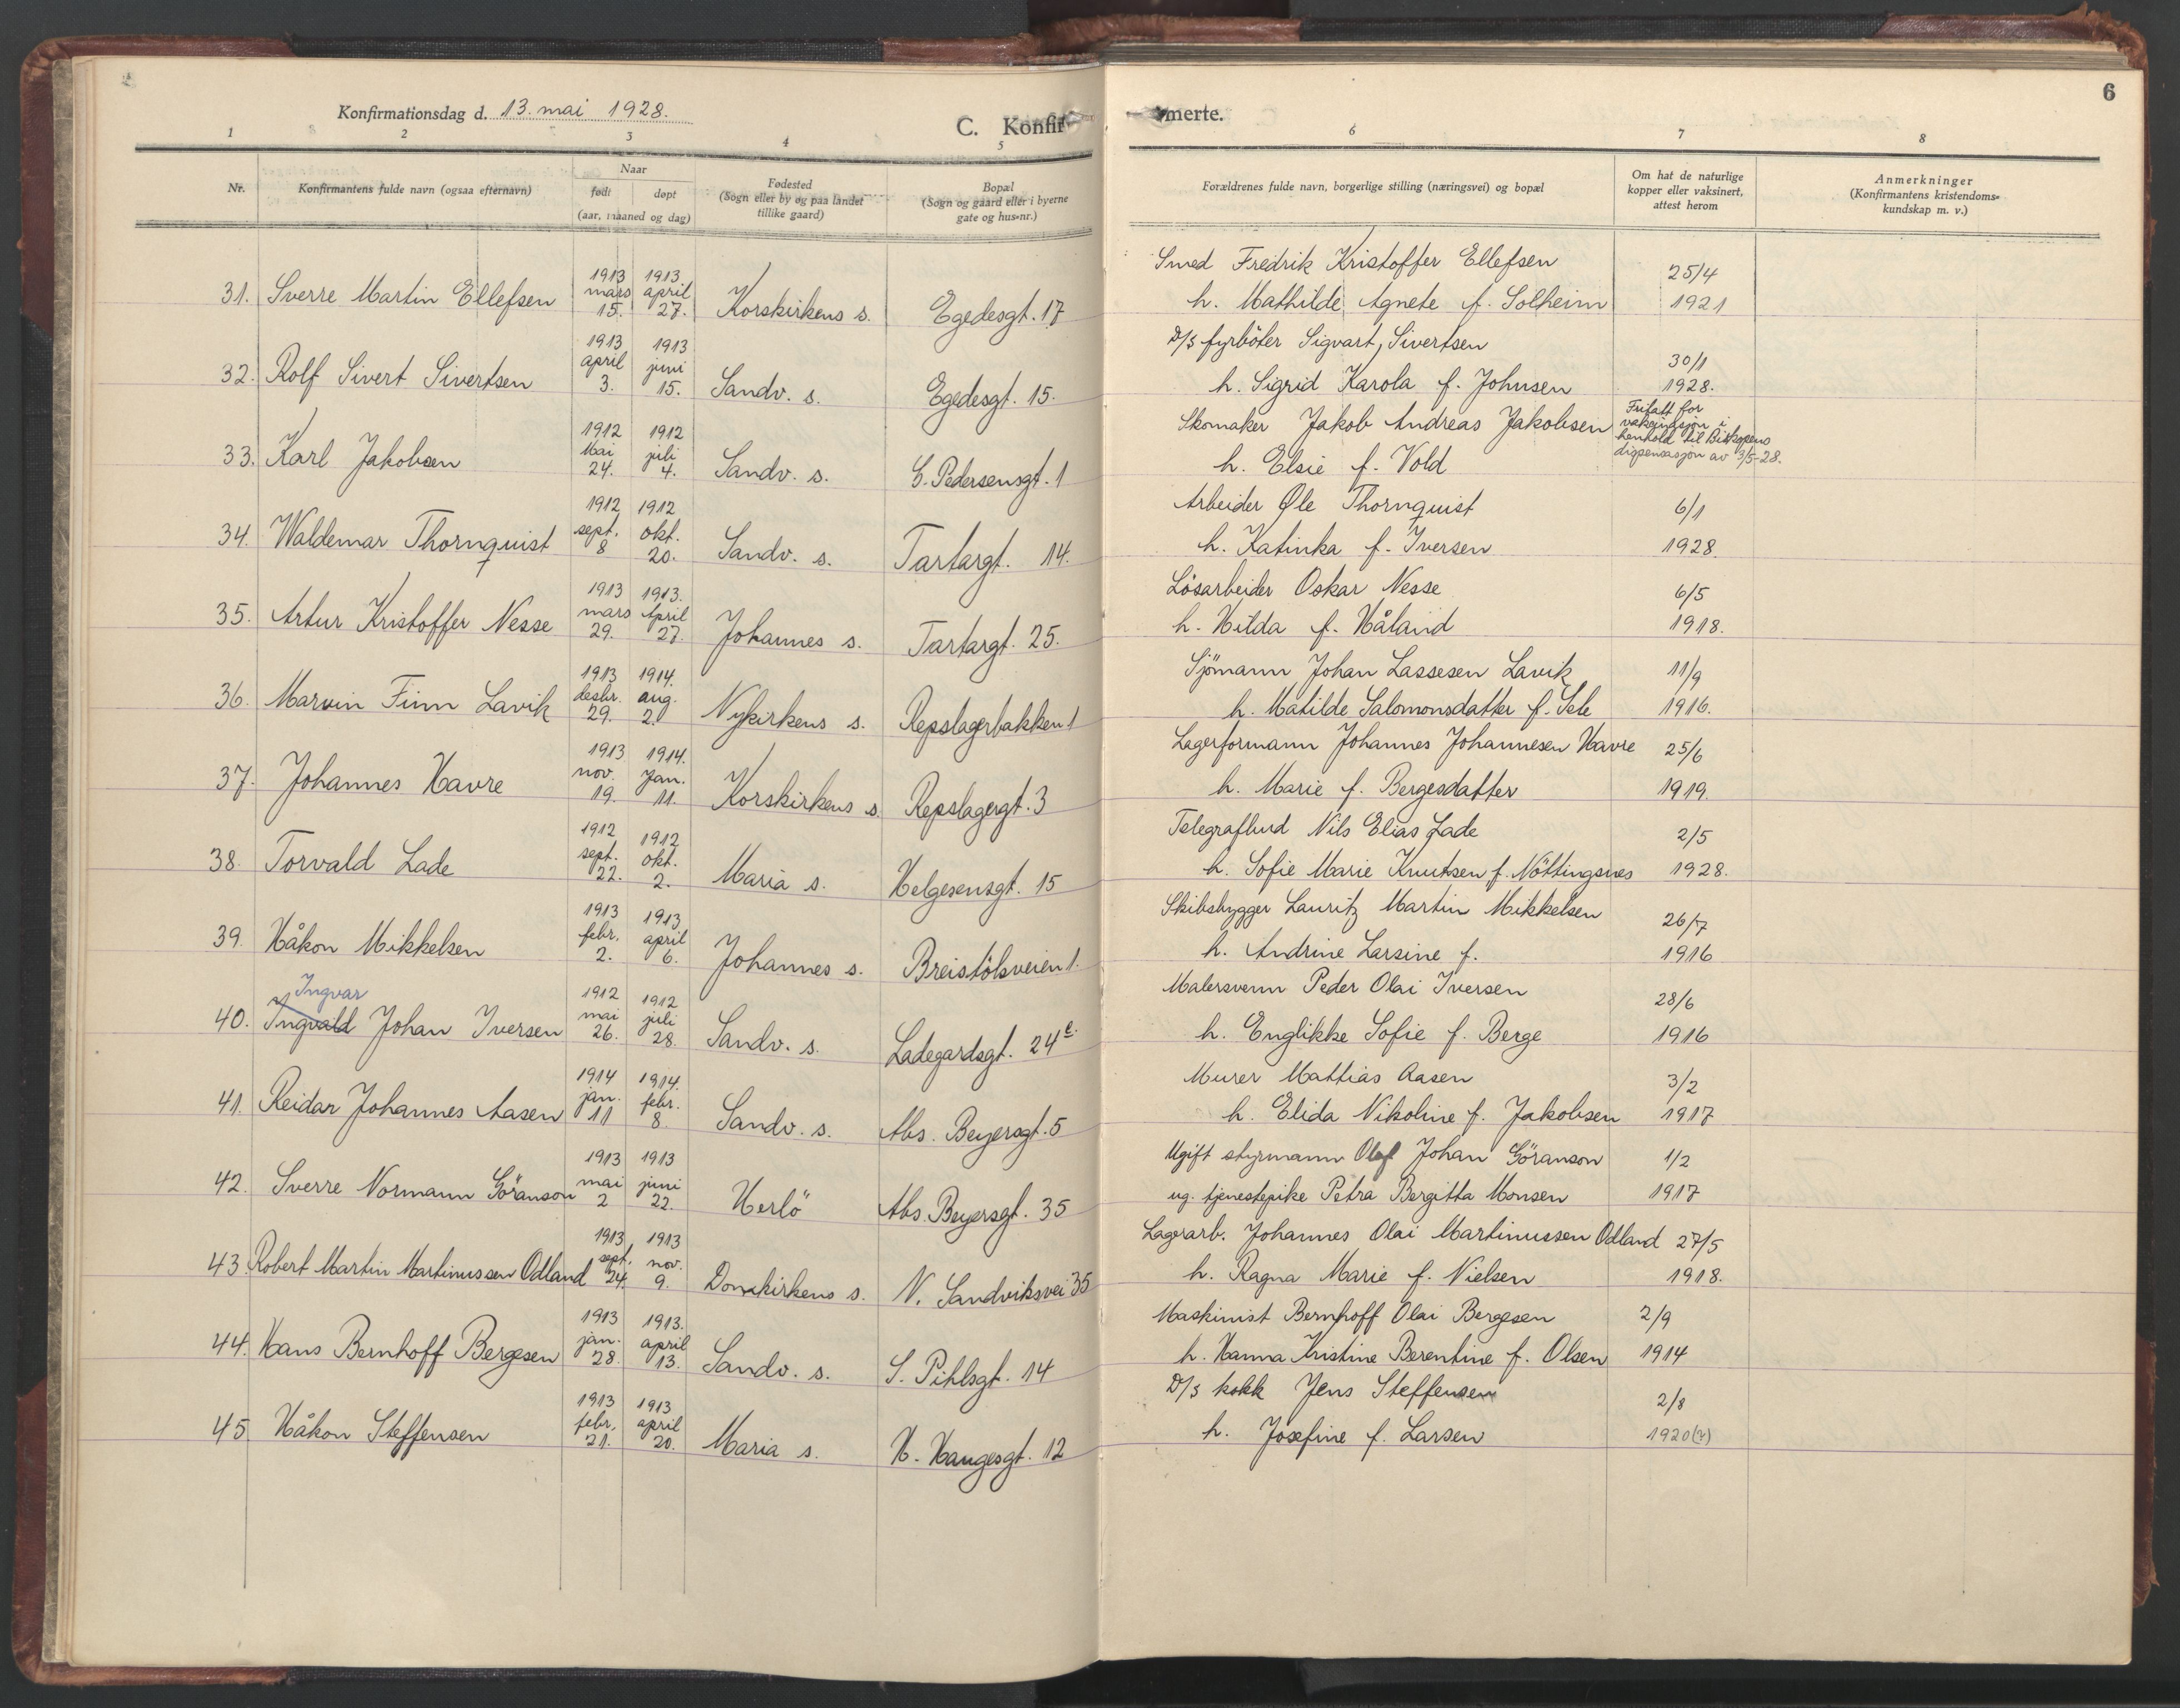 6
Konfirmationsdag d. 13. mai 1928.
C. Konfir merte.
1 2 3 4 5 6 7 8
Nr.
Konfirmantens fulde navn (ogsaa efternavn)
Naar
født døpt
(aar, maaned og dag)
Fødested
(Sogn eller by og paa landet
tillike gaard)
Bopæl
(Sogn og gaard eller i byerne
gate og hus=nr.)
Forældrenes fulde navn, borgerlige stilling (næringsvei) og bopæl
Om hat de naturlige
kopper eller vaksinert,
attest herom
Anmerkninger
(Konfirmantens kristendoms=
kundskap m. v.)
31. Sverre Martin Ellefsen
1913 mars 15. 1913 april 27.
Korskirkens s. Egedesgt. 17
Smed Fredrik Kristoffer Ellefsen
h. Mathilde Agnete f. Solheim
25/4 1921
32. Rolf Sivert Sivertsen
1913 april 3. 1913 juni 15.
Sandv. s. Egedesgt. 15.
D/s fyrböter Sigvart Sivertsen
h. Sigrid Karola f. Johnsen
30/1 1928.
33. Karl Jakobsen
1912 Mai 24. 1912 juli 4.
Sandv. s. G. Pedersensgt. 1
Skomaker Jakob Andreas Jakobsen
h. Elsie f. Vold
Fritatt for
vaksinasjon i
henhold til Biskopens
dispensasjon av 3/5-28.
34. Waldemar Thornquist
1912 sept. 8 1912 okt. 20.
Sandv. s. Tartargt. 14.
Arbeider Ole Thornquist
h. Katinka f. Iversen
6/1 1928.
35. Artur Kristoffer Nesse
1913 mars 29. 1913. April 27.
Johannes s. Tartargt. 25.
Lösarbeider Oskar Nesse
h. Hilda f. Håland
6/5 1918.
36. Marvin Finn Lavik
1913 desbr. 29. 1914. aug. 2.
Nykirkens s. Repslagerbakken 1
Sjömann Johan Lassesen Lavik
h. Matilde Salomonsdatter f. Sele
11/9 1916.
37. Johannes Havre
1913 nov. 19. 1914. Jan. 11.
Korskirkens s. Repslagergt. 3
Lagerformann Johannes Johannesen Havre
h. Marie f. Bergesdatter
25/6 1919.
38. Torvald Lade
1912 sept. 22. 1912 okt. 2.
Maria s. Helgesensgt. 15
Telegrafbud Nils Elias Lade
h. Sofie Marie Knutsen f. Nöttingsnes
2/5 1928.
39. Håkon Mikkelsen
1913 febr. 2. 1913 april 6.
Johannes s. Breistölsveien 1.
Skibsbygger Lauritz Martin Mikkelsen
h. Andrine Larsine f.
26/7 1916
Ingvar
40. Ingvald Johan Iversen
1912 mai 26. 1912 juli 28.
Sandv. s. Ladegardsgt. 24 e.
Malersvenn Peder Olai Iversen
h. Englikke Sofie f. Berge
28/6 1916
41. Reidar Johannes Aasen
1914 jan. 11 1914. febr. 8.
Sandv. s. Abs. Beyersgt. 5
Murer Mattias Aasen
h. Elida Nikoline f. Jakobsen
3/2 1917
42. Sverre Normann Göranson
1913 mai 2 1913 juni 22.
Herlö Abs. Beyersgt. 35
Ugift styrmann Olaf Johan Göranson
ug. tjenestepike Petra Bergitta Monsen
1/2 1917
43. Robert Martin Martinussen Odland
1913 sept. 24. 1913 nov. 9.
Domkirkens s. N. Sandviksvei 35
Lagerarb. Johannes Olai Martinussen Odland
h. Ragna Marie f. Nielsen
27/5 1918.
44. Hans Bernhoff Bergesen
1913 jan. 28. 1913. april 13.
Sandv. s. S. Pihlsgt. 14
Maskinist Bernhoff Olai Bergesen
h. Hanna Kristine Berentine f. Olsen
2/9 1914
45. Håkon Steffensen
1913 febr. 21. 1913 april 20.
Maria s. H. Haugesgt. 12
D/s kokk Jens Steffensen
h. Josefine f. Larsen
2/8 1920(?)